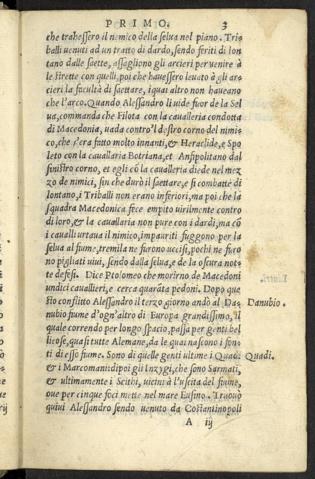 PRIMO. 3
che trahessero il nemico della selua nel piano. Tri=
balli uenuti ad un tratto di dardo, sendo feriti di lon
tano dalle saette, assagliono gli arcieri per uenire à
le strette con quelli, poi che hauessero leuato à gli ar=
cieri la facultà di saettare, i quai altro non haueano
che l'arco. Quando Alessandro li uide fuor de la Sel
ua, commanda che Filota con la caualleria condotta
di Macedonia, uada contro'l destro corno del nimi=
co, che s'era fatto molto innanti, & Heraclide, e Spo
leto con la cauallaria Botriana, et Anfipolitano dal
sinistro corno, et egli cō la caualleria diede nel mez
zo de nimici, sin che durò il saettare, e si combatte di
lontano, i Triballi non erano inferiori, ma poi che la
squadra Macedonica fece empito uirilmente contro
di loro, & la cauallaria non pure con i dardi, ma cō
i caualli urtaua il nimico, impauriti fuggono per la
selua al fiume, tremila ne furono uccisi, pochi ne furo
no pigliati uiui, sendo dalla selua, e de la oscura not=
te defesi. Dice Ptolomeo che morirno de Macedoni
undici cauallieri, e cerca quarāta pedoni. Dopo que
sto conflitto Alessandro il terzo giorno andò al Da=
nubio fiume d'ogn'altro di Europa grandissimo, il
quale correndo per longo spacio, passa per genti bel
licose, quasi tutte Alemane, da le quai nascono i fon=
ti di esso fiume. Sono di quelle genti ultime i Quadi
& i Marcomani di poi gli Inzygi, che sono Sarmati,
& ultimamente i Scithi, uicini à l'uscita del fiume,
oue per cinque foci mette nel mare Eusino. Trouò
quiui Alessandro sendo uenuto da Costantinopoli
A ij
Danubio.
Quadi.